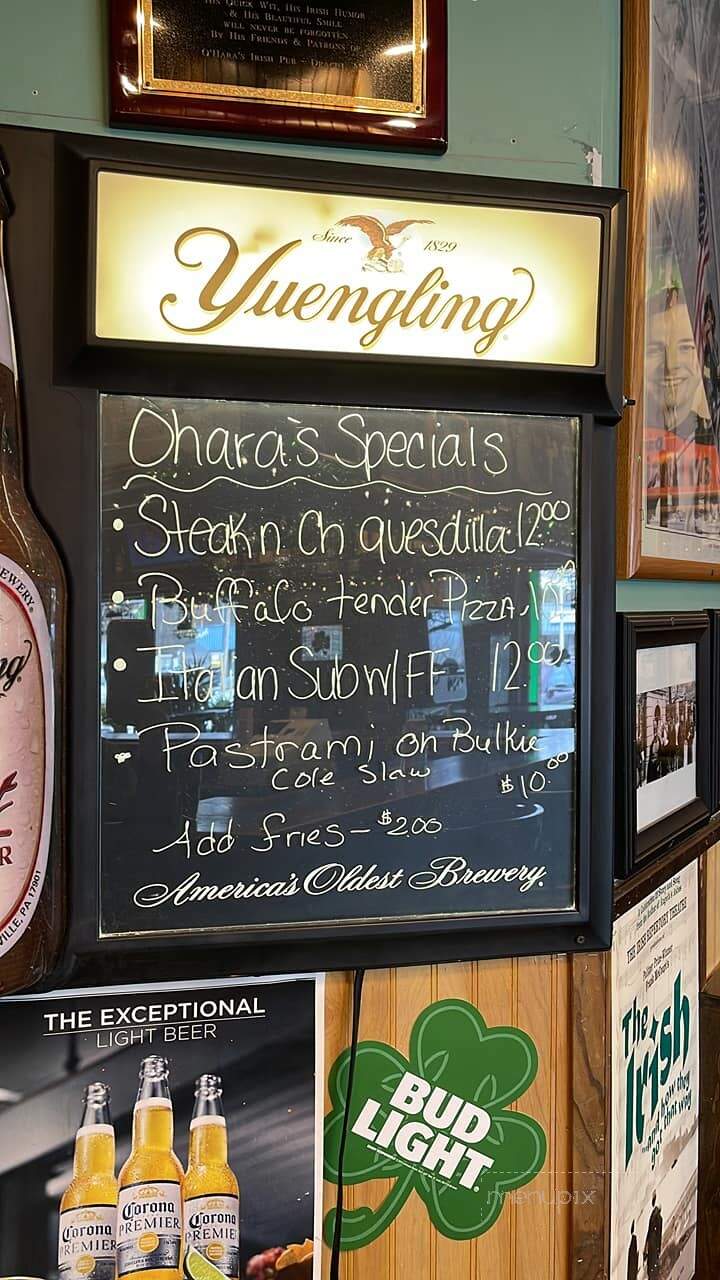 His Quick Wit, His Irish Humor
& His Beautiful Smile
will never be forgotten
By His Friends & Patrons of
O'Hara's Irish Pub -
Since 1829
Yuengling
Ohara's Specials
• Steak n Ch quesdilla 12.00
• Buffalo tender Pizza
• Italian Sub W/FF 12.00
• Pastrami on Bulkie
Cole Slaw
$10.00
Add fries - $2.00
America's Oldest Brewery.
VILLE, PA 17901
THE EXCEPTIONAL
LIGHT BEER
Corona
PREMIER
Corona
PREMIER
Corona
PREMIER
BUD
LIGHT
THE IRISH REPERTORY THEATRE
The
Irish
...and how they
got that way
menupix